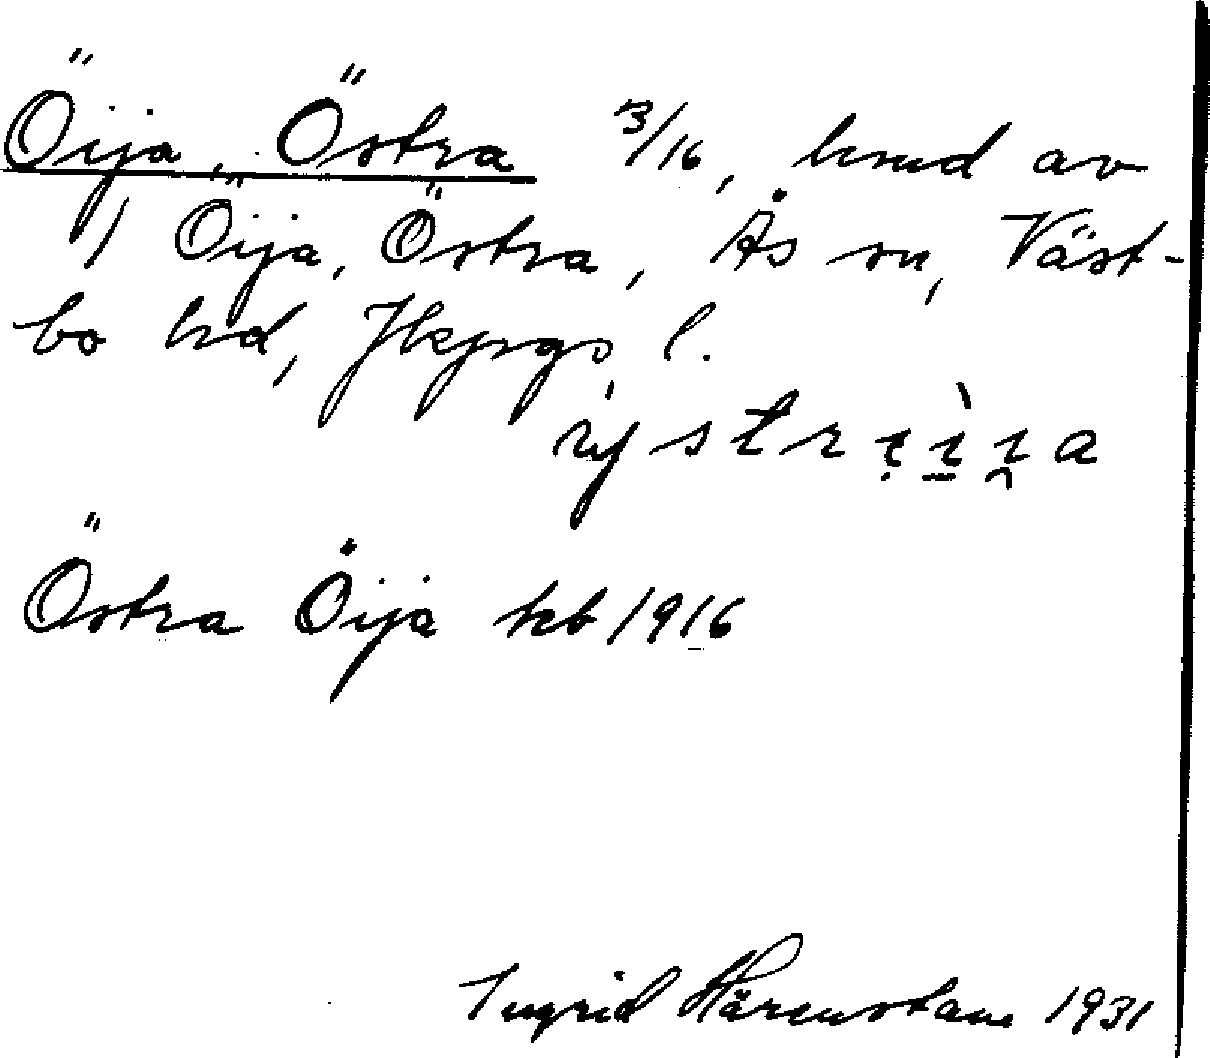 Öija, Östra 3/16, hmd av
1 Öija, Östra, Ås sn, Väst-
bo hd, Jkpgs l.
Östra Öija kb 1916
Ingrid Härenstam 1931